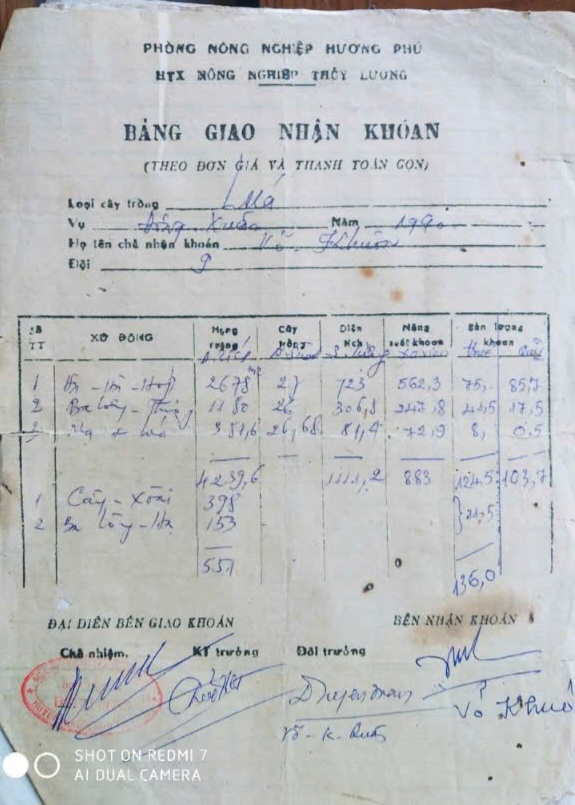 PHÒNG NÔNG NGHIỆP HƯƠNG PHÚ
HTX NÔNG NGHIỆP THỦY LƯƠNG
BẢNG GIAO NHẬN KHOÁN
(THEO ĐƠN GIÁ VÀ THANH TOÁN GỌN)
Loại cây trồng Lúa
Vụ Đông Xuân Năm 1990
Họ tên chủ nhận khoán Võ Khuôn
Đội 9
Số TT XỨ ĐỒNG Hạng ruộng Cây trồng Diện tích Năng suất khoán Sản lượng khoán
1 2678 m2 27 723 562,3 75, 85,7
2 1180 26 306,8 247,8 41,5 17,5
3 381,6 26,68 81,4 72,9 8, 0,5
4239,6 1111,2 883 124,5 103,7
1 Cây - Xoài 398
2 153
551
136,0
ĐẠI DIỆN BÊN GIAO KHOÁN BÊN NHẬN KHOÁN
Chủ nhiệm. KT trưởng Đội trưởng
Võ Khuô
SHOT ON REDMI 7
AI DUAL CAMERA